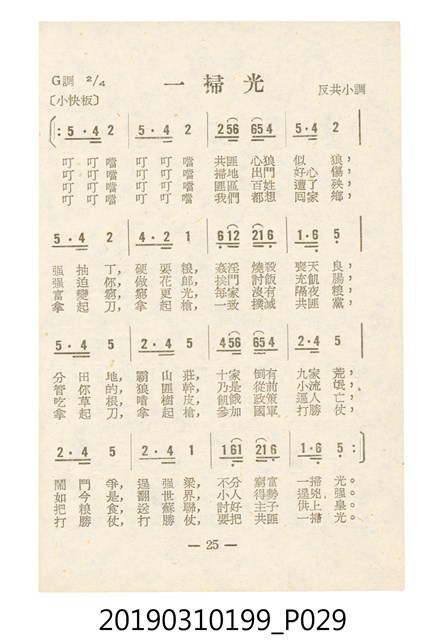 G調 2/4
一掃光
反共小調
〔小快板〕
〔: 5·4 2 5·4 2 256 654 5·4 2
叮叮噹 叮叮噹 共匪心狼 似狼,
叮叮噹 叮叮噹 掃地出門 好心傷,
叮叮噹 叮叮噹 匪區百姓 遭了殃,
叮叮噹 叮叮噹 我們都想 回家鄉,
5·4 2 4·2 1 612 216 1·6 5
强抽丁, 硬要糧, 姦淫燒殺 喪天良,
强迫你, 做花郎, 挨門討飯 充飢腸,
富變窮, 窮更光, 每家沒有 隔夜糧,
拿起刀, 拿起槍, 一致撲滅 共匪黨,
5·4 5 2·4 5 456 654 2·4 5
分田地, 霸山莊, 十家倒有 九家荒,
管你的, 狼匪幹, 乃是從前 小流氓,
吃草根, 啃樹皮, 飢餓政策 逼人亡,
拿起刀, 拿起槍, 參加國軍 打勝仗,
2·4 5 2·4 1 161 216 1·6 5 :〕
鬧鬥爭, 逞强梁, 不分窮富 一掃光。
如今是, 翻世界, 小人得勢 逞兇强。
把糧食, 送蘇聯, 討好主子 供上皇。
打勝仗, 打勝仗, 要把共匪 一掃光。
— 25 —
20190310199_P029